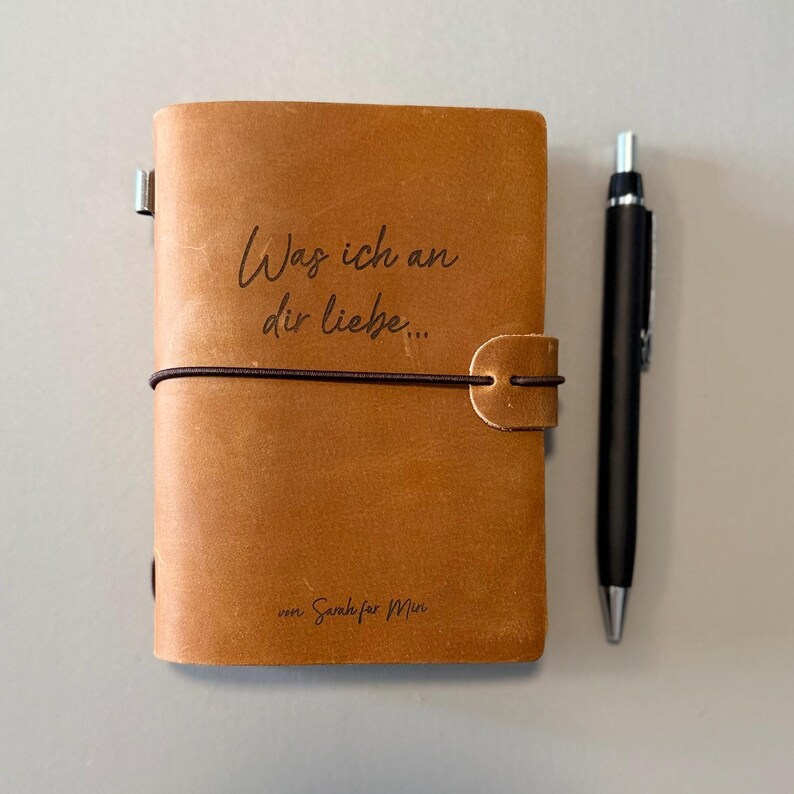 Was ich an
dir liebe...
von Sarah für Miri